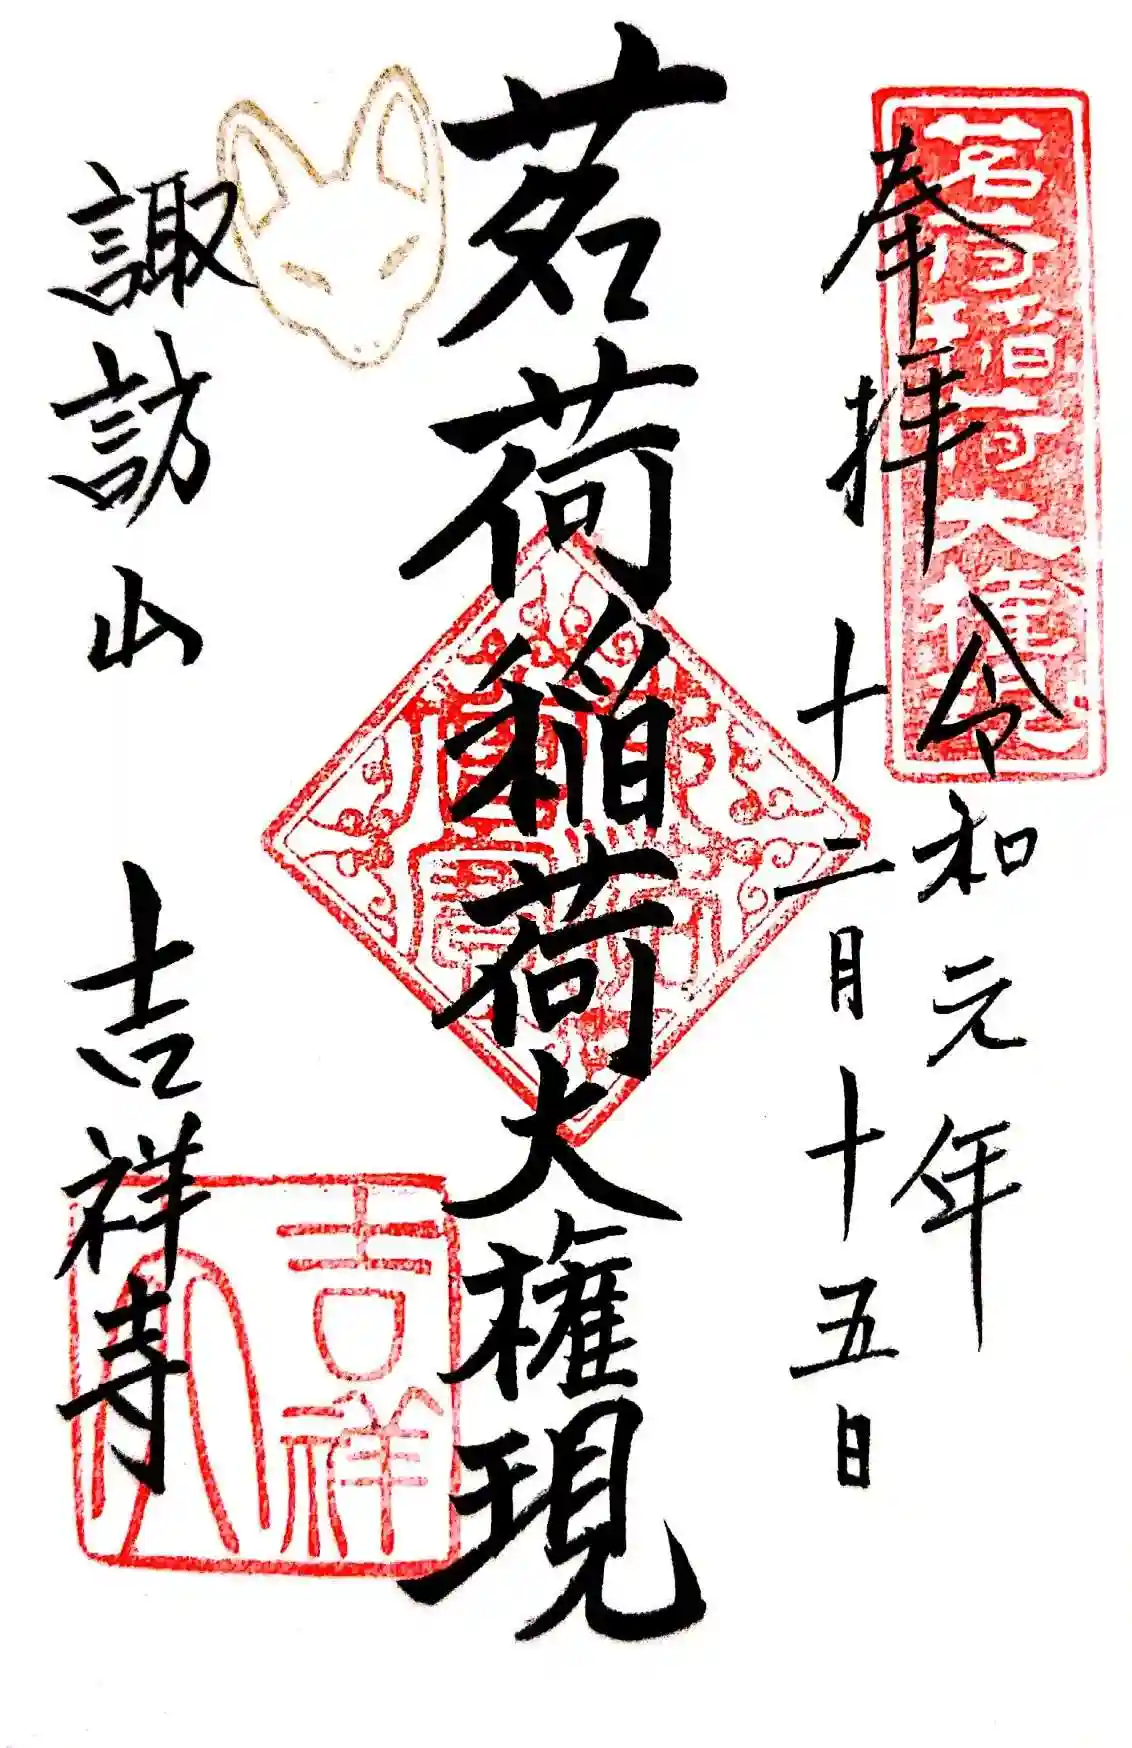 奉拝
茗荷稲荷大権現
令和元年
十二月十五日
茗荷稲荷大権現
諏訪山
吉祥寺
吉祥